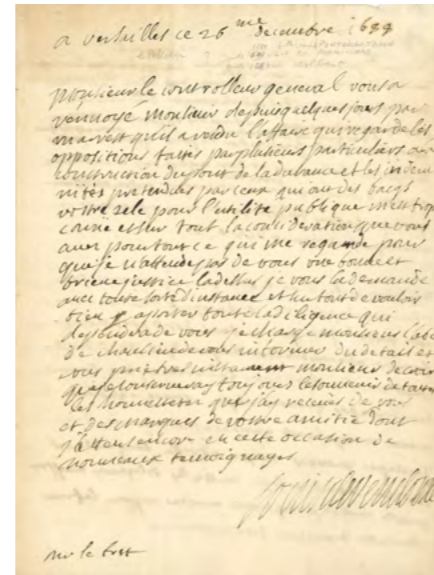 a versailles ce 26 me decembre 1688
Monsieur le controlleur general vous a
renvoyé monsieur depuis quelques jours par
qui regarde les
oppositions faites par plusieurs particuliers a la
construction du pont de la durance et les indem
nités pretendues par ceux qui ont des bacqs
vostre zele pour l'utilité publique m'est trop
connu et sur tout la consideration que vous
avez pour tout ce qui me regarde pour
que je n'attende pas de vous une bonne et
brieve justice la dessus je vous la demande
avec toute sorte d'instance et sur tout de vouloir
bien y apporter toute la diligence qui
dependra de vous je charge monsieur l'abé
de vous informer du detail et
vous prie tres instament monsieur de croire
que je conserveray tousjours le souvenir de toutes
les honnestetes que j'ay receues de vous
et des marques de vostre amitié dont
j'attens encor en cette occasion de
nouveaux temoignages
Louis de vendosme
mr le bret